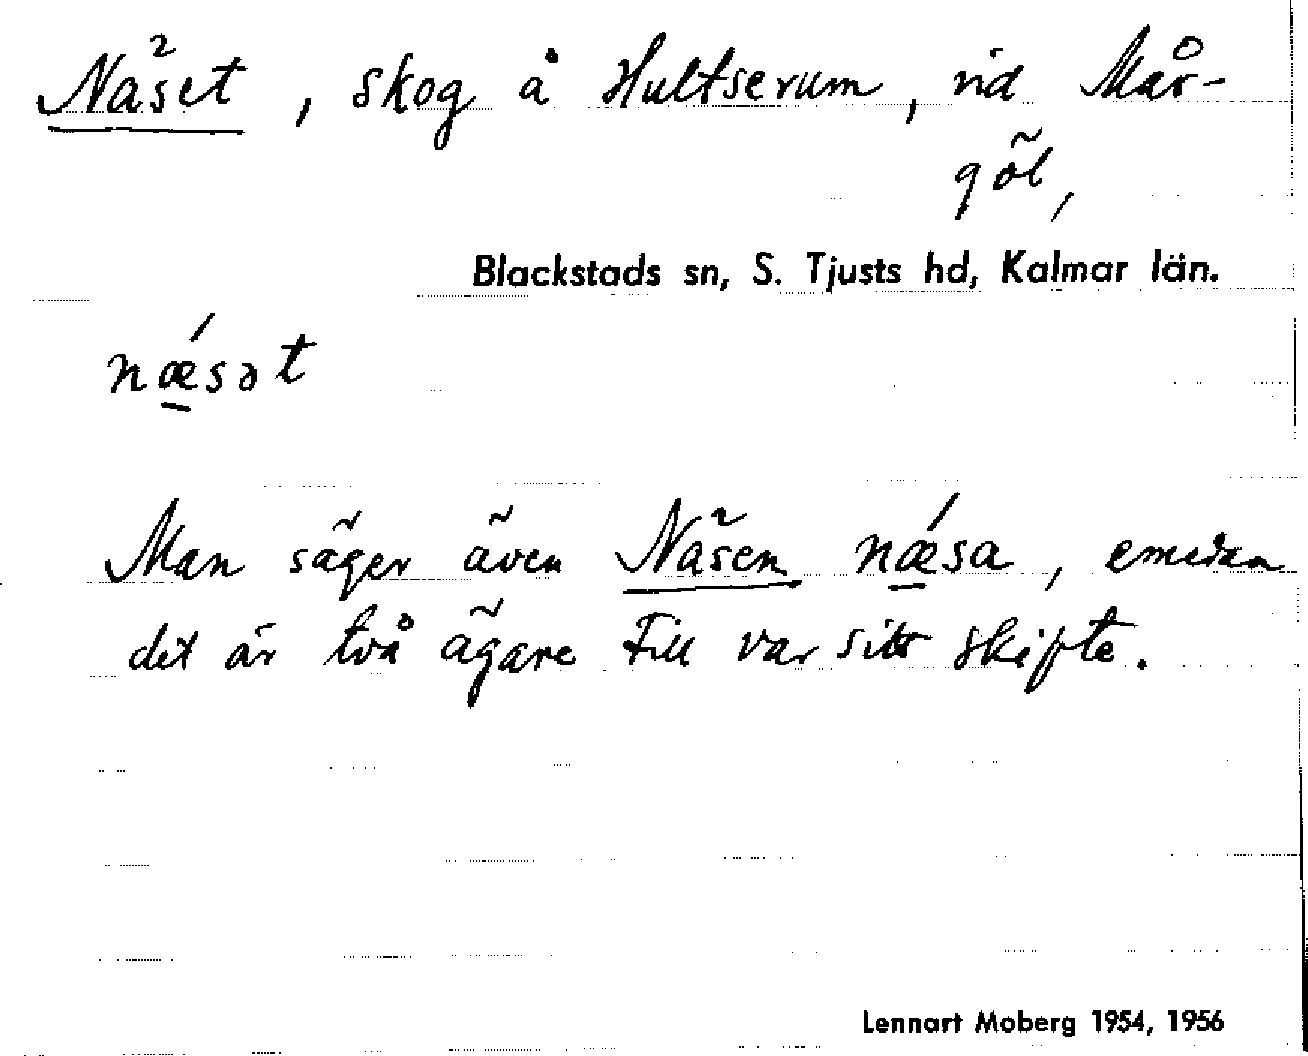 Näset, skog å Hultserum, vid Mår-
göl,
Blackstads sn, S. Tjusts hd, Kalmar län.
nǽ̱sət
Man säger även Näsen nǽ̱sa, emedan
det är två ägare till var sitt skifte.
Lennart Moberg 1954, 1956